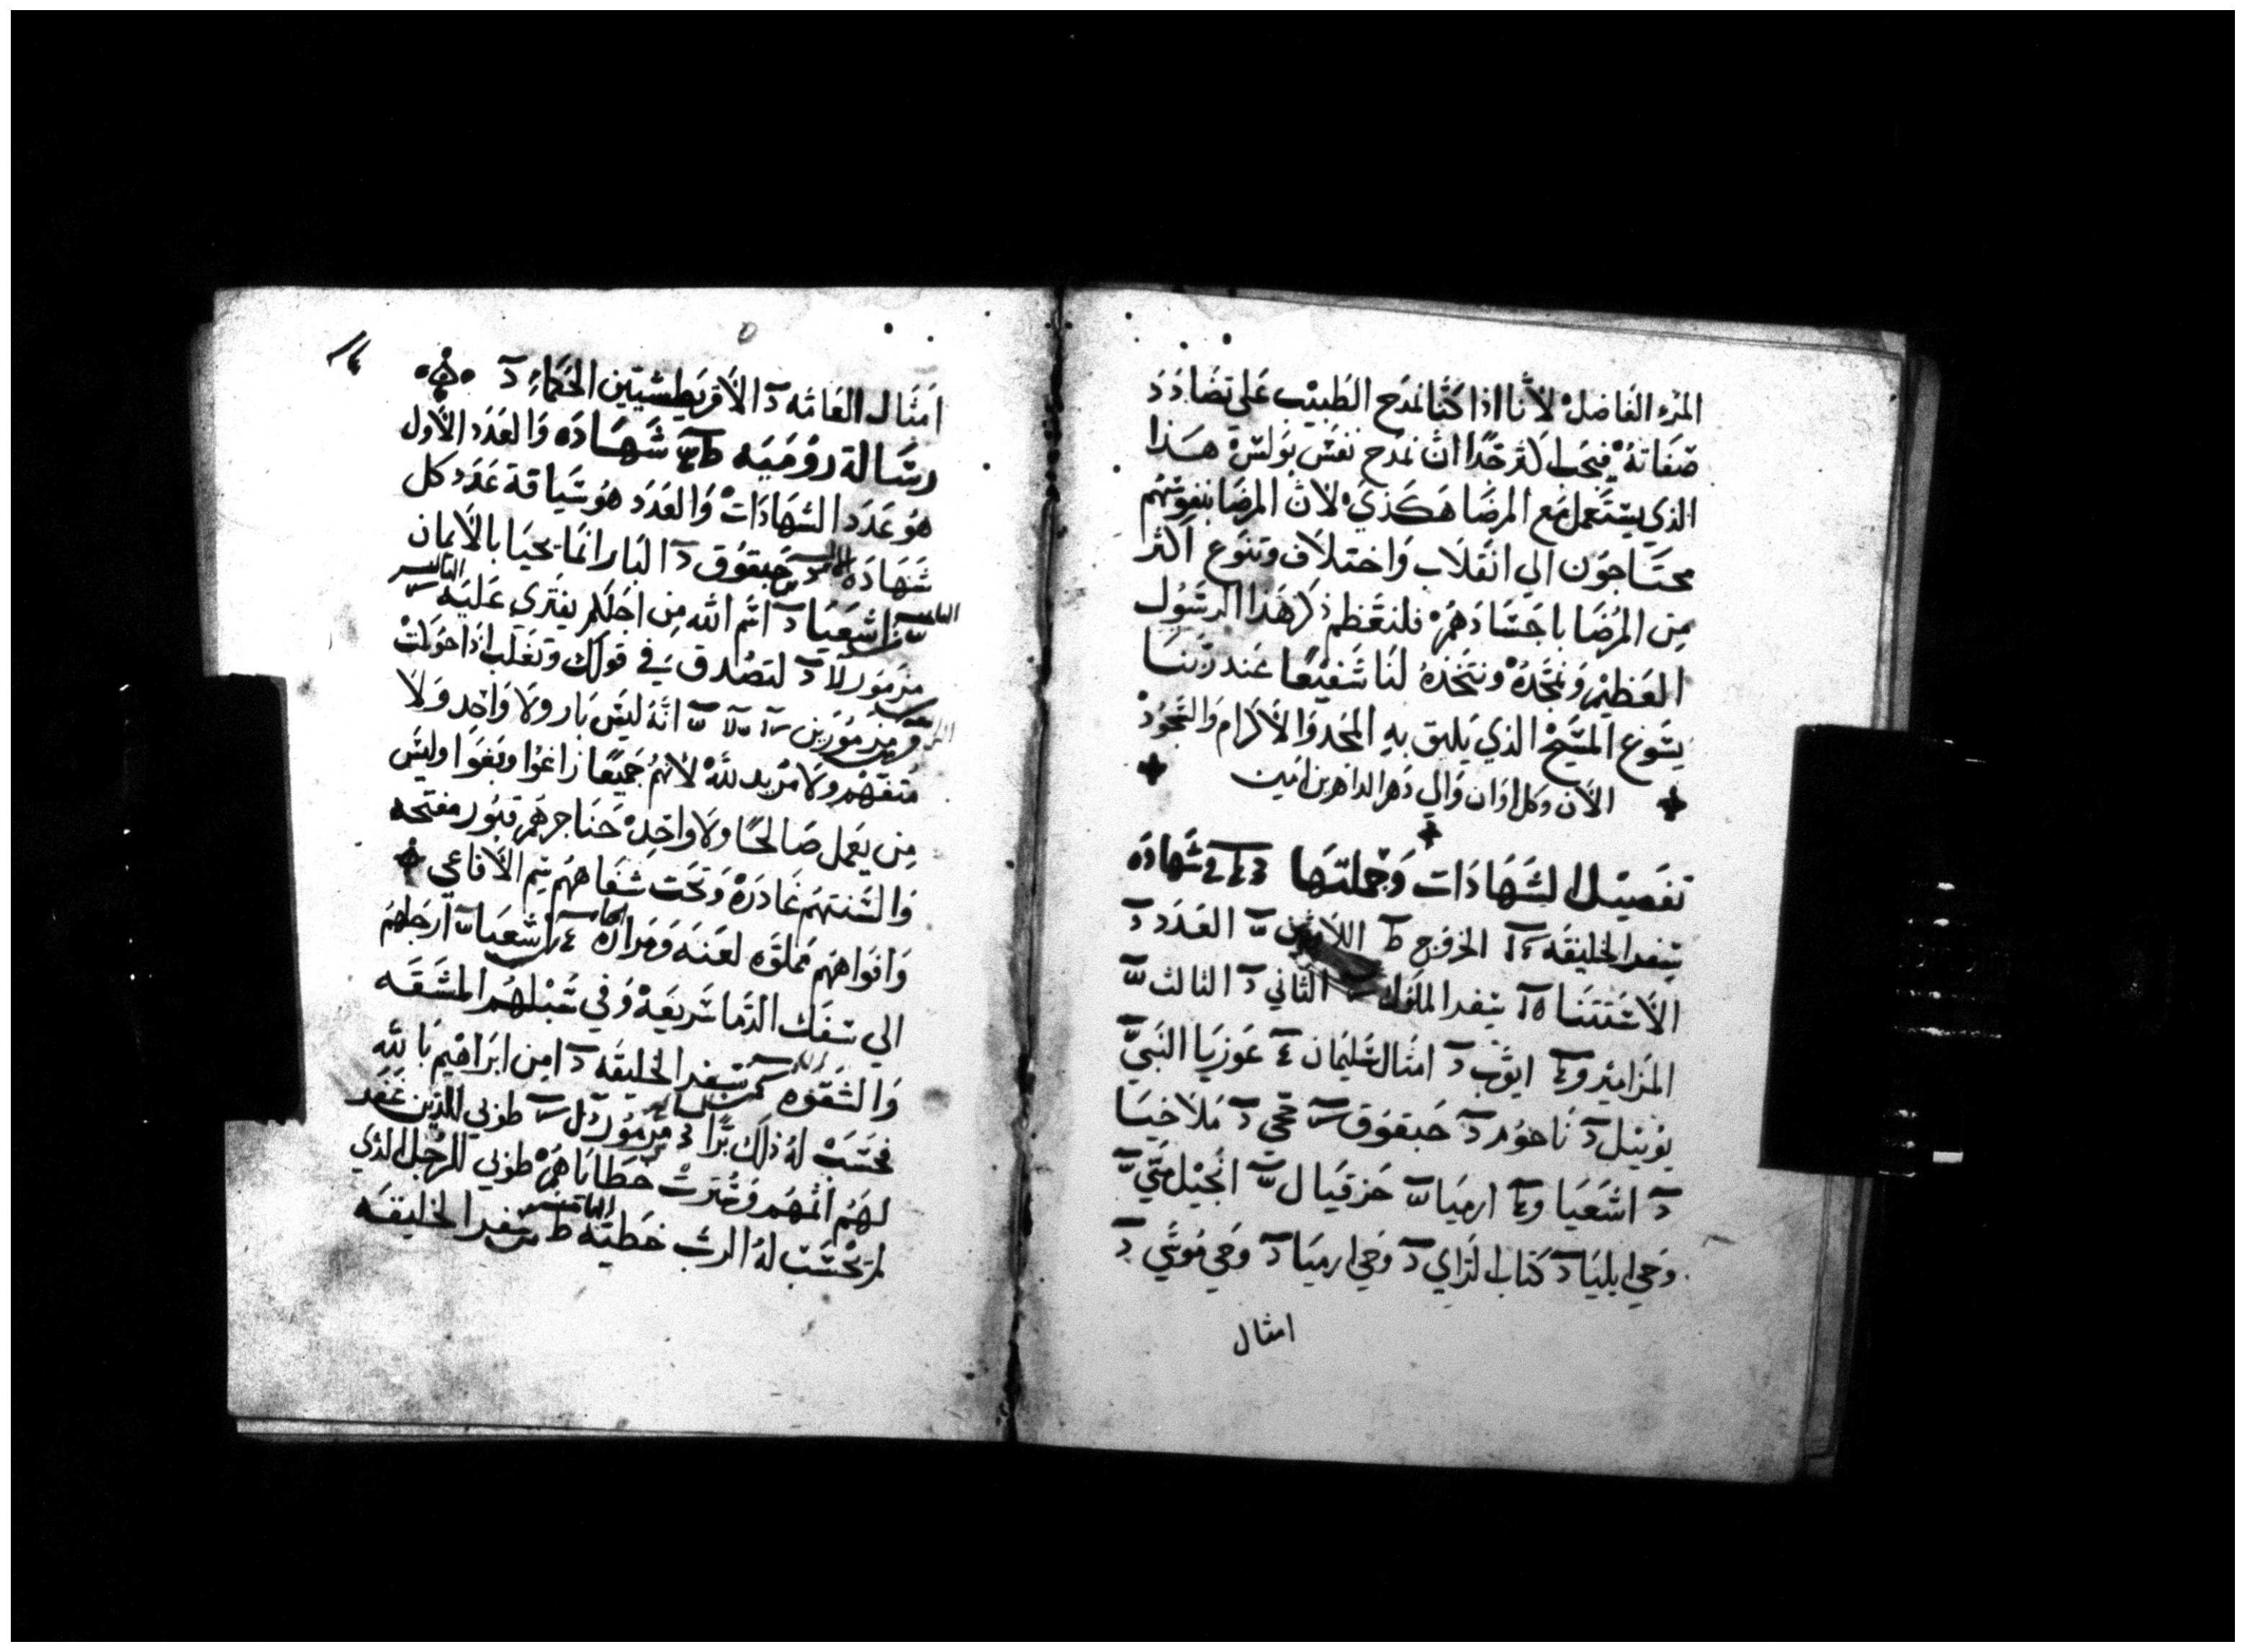 المرء الفاضل لأنا اذا كنا نمدح الطبيب علي تضادد
صفاته فيجب اكثر جدًا ان نمدح نفس بولس هذا
الذي يستعمل مع المرضا هكذي لان المرضا بنفوسهم
محتاجون الي انقلاب واختلاف وتنوع اكثر
من المرضا باجسادهم فلنعظم ذكر هذا الرسول
العظيم ونمجده ونتخذه لنا شفيعًا عند ربنا
يسوع المسيح الذي يليق به المجد والاكرام والسجود
الان وكل اوان والي دهر الداهرين امين
تفصيل الشهادات وجملتها شهادة
سفر الخليقه الخروج اللاويين العدد
الاستتنا سفر الملوك الثاني الثالث
المزامير ايوب امثال سليمان عوزيا النبي
يوئيل ناحوم حبقوق حجي ملاخيا
اشعيا ارميا حزقيال انجيل متي
وحي ايليا كتاب الراي وحي ارميا وحي موسي
امثال
امثال العامه الاقريطشيين الحكماء
رسالة روميه شهاده والعدد الاول
هو عدد الشهادات والعدد هو سياقة عدد كل
شهاده حبقوق البار انما يحيا بالايمان
اشعيا اسم الله من اجلكم يفتري عليه
مزمور لتصدق في قولك وتغلب اذا حوكمت
مزمورين انه ليس بار ولا واحد ولا
متفهم ولا مريد لله لانهم جميعًا زاغوا وبغوا وليس
من يعمل صالحًا ولا واحد حناجرهم قبور مفتحه
والسنتهم غادرة وتحت شفاههم سم الافاعي
وافواههم مملوه لعنه ومراره اشعيا ارجلهم
الي سفك الدما سريعة وفي سبلهم المشقه
والشقوه سفر الخليقه امن ابراهيم بالله
فحسب له ذلك برًا مزمور طوبي للذين غفر
لهم اثمهم وسترت خطاياهم طوبي للرجل الذي
لم يحسب له الرب خطيه سفر الخليقه